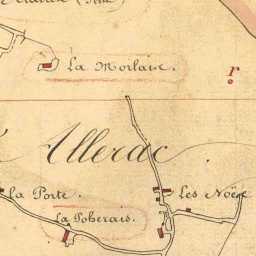 La Morlaie.
r
Allerac
La Porte.
Les Noës
La Poherais.